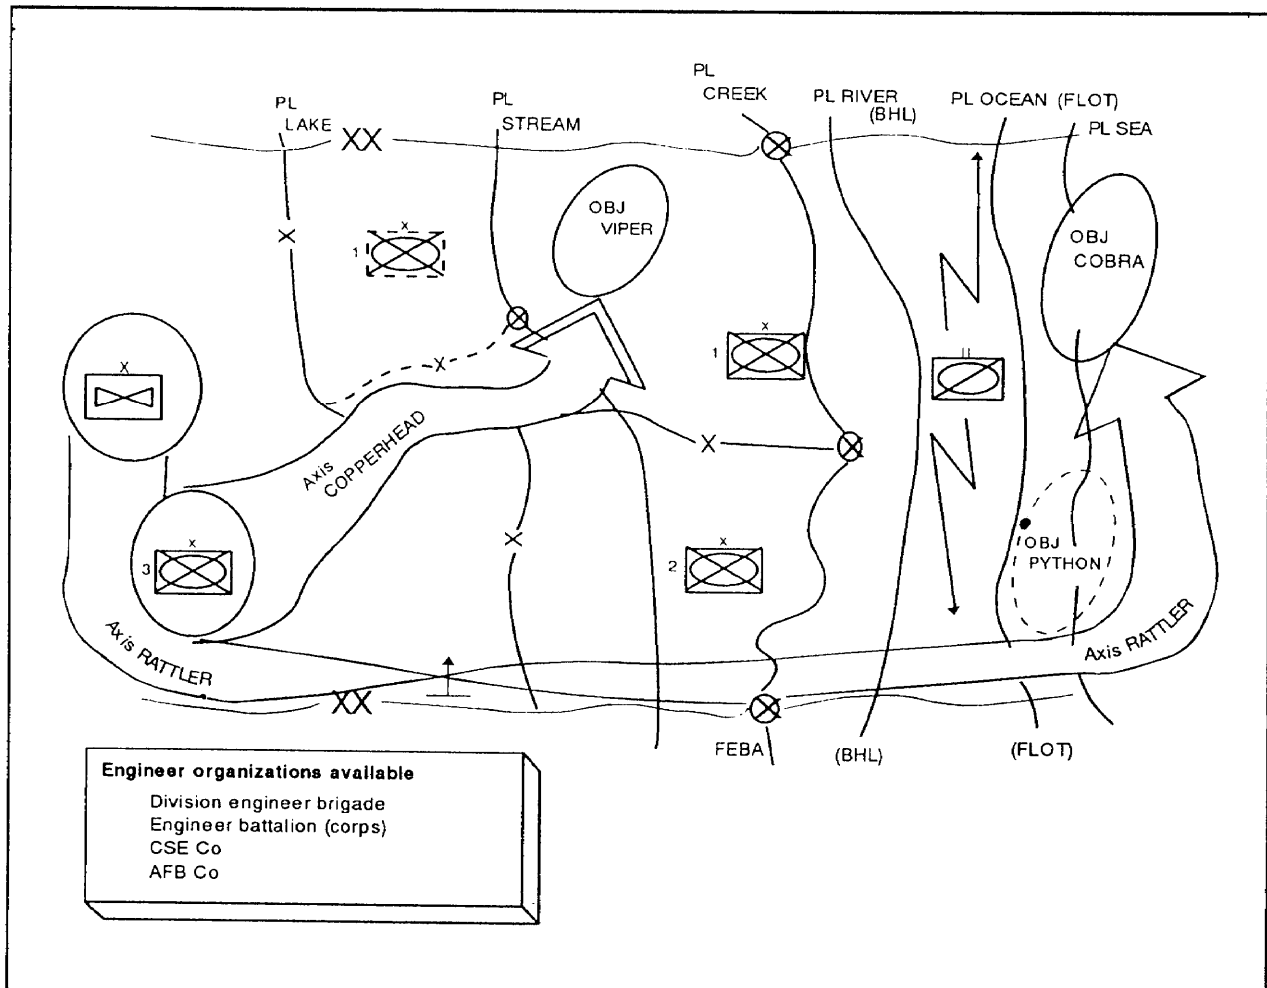 PL
LAKE
XX
PL
STREAM
PL
CREEK
PL RIVER
(BHL)
PL OCEAN (FLOT)
PL SEA
OBJ
VIPER
OBJ
COBRA
X
X
1
X
1
X
II
X
X
Axis
COPPERHEAD
X
X
3
X
X
2
OBJ
PYTHON
Axis RATTLER
Axis RATTLER
XX
FEBA
(BHL)
(FLOT)
Engineer organizations available
Division engineer brigade
Engineer battalion (corps)
CSE Co
AFB Co